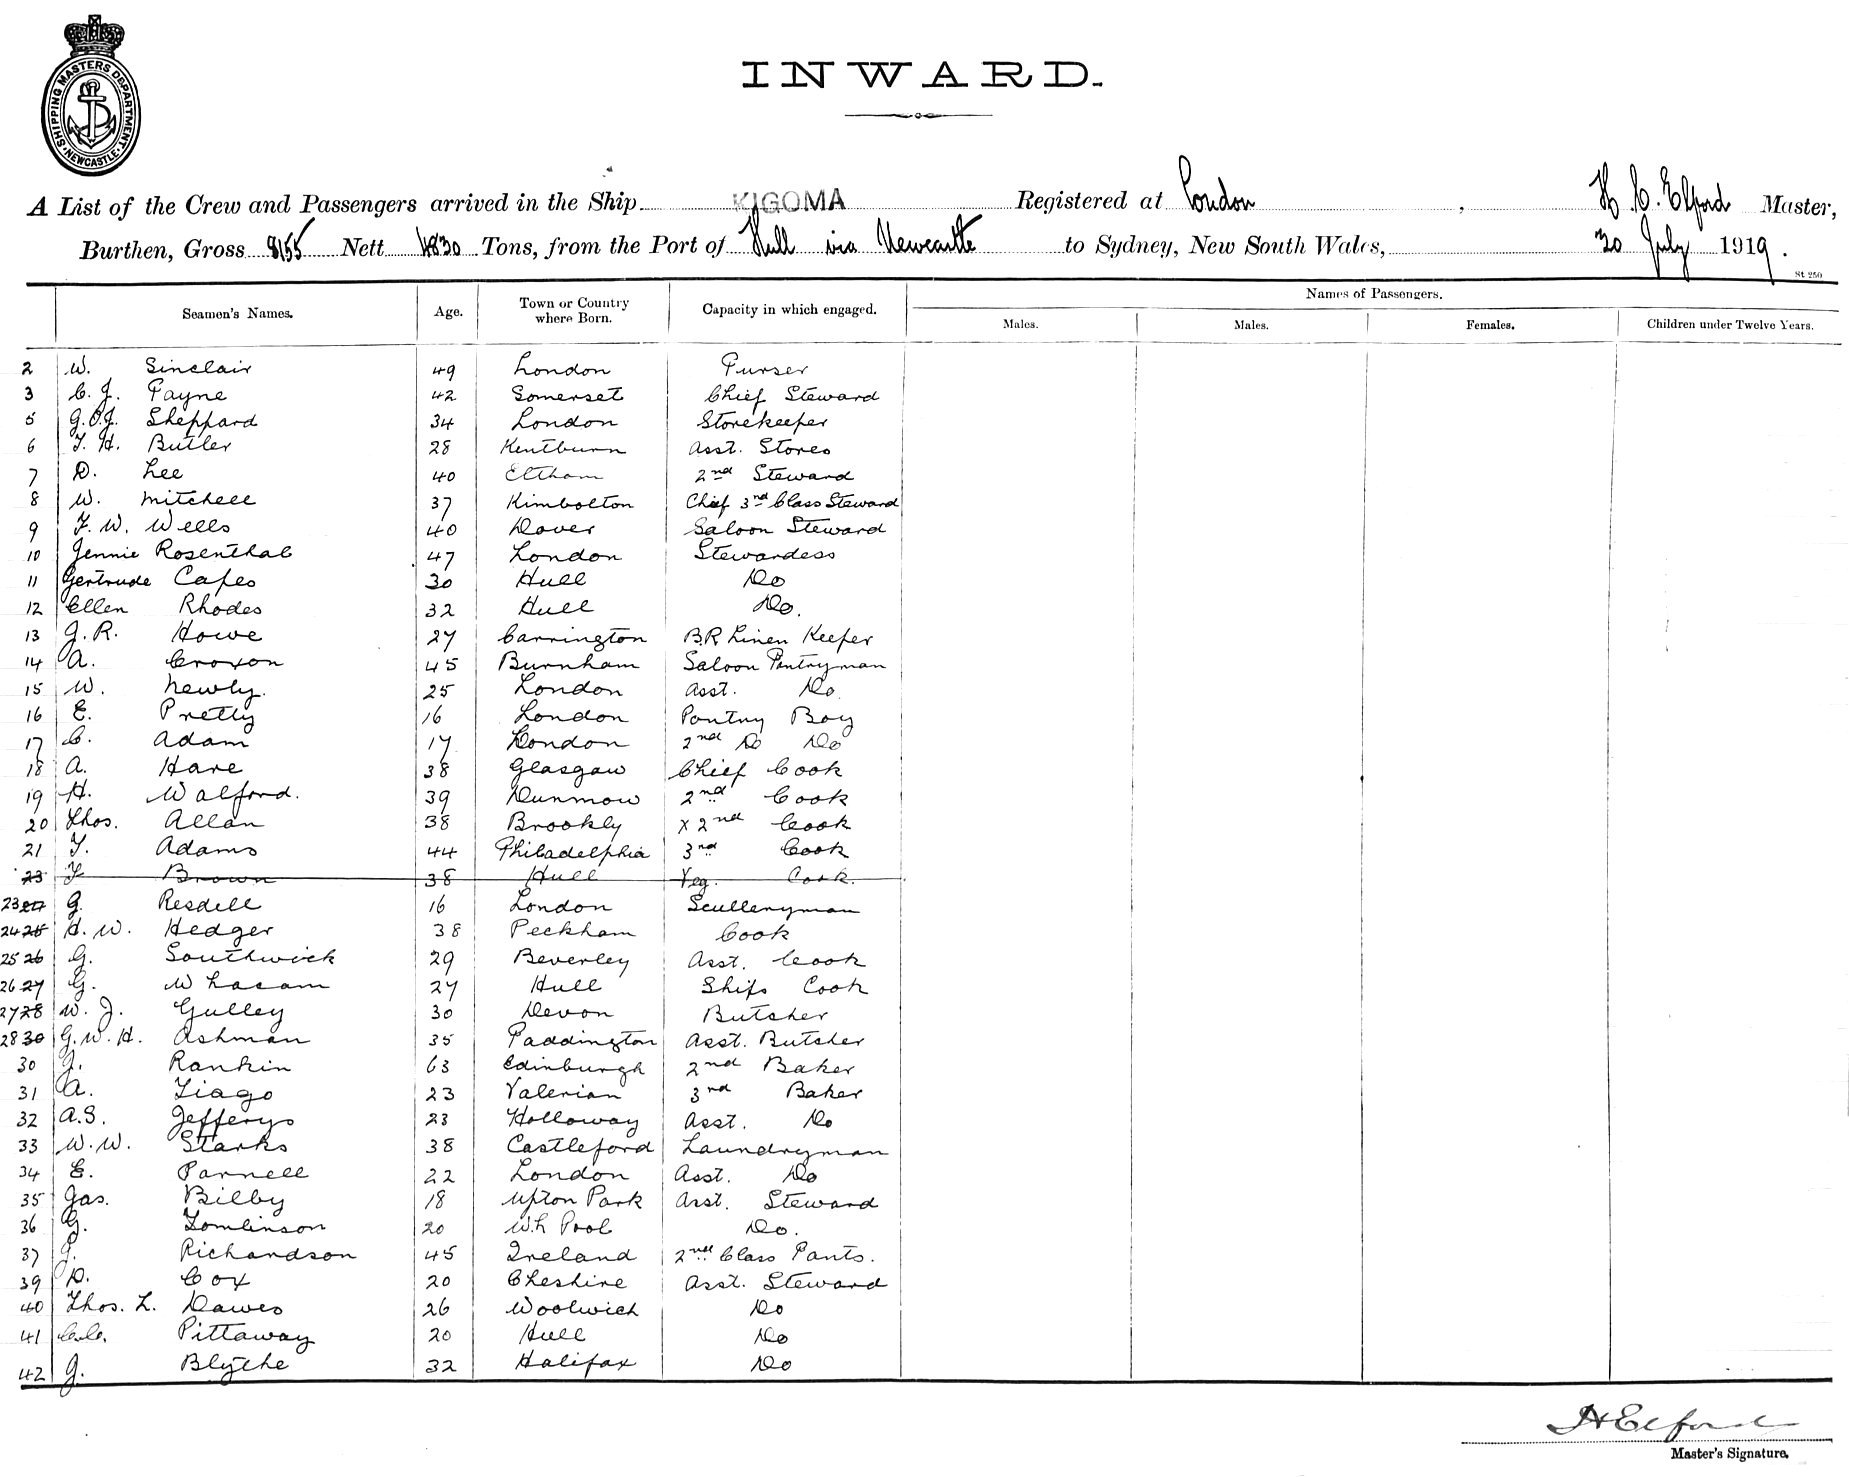 SHIPPING MASTERS DEPARTMENT
NEWCASTLE
INWARD.
A List of the Crew and Passengers arrived in the Ship KIGOMA Registered at London , H. C. Elford Master,
Burthen, Gross 8155 Nett 4830 Tons, from the Port of Hull via Newcastle to Sydney, New South Wales, 30 July 1919.
St 250
Seamen's Names. Age. Town or Country where Born. Capacity in which engaged. Names of Passengers.
Males. Males. Females. Children under Twelve Years.
2 W. Sinclair 49 London Purser
3 C. J. Payne 42 Somerset Chief Steward
5 G.O.J. Sheppard 34 London Storekeeper
6 T. H. Butler 28 Kentburn Asst. Stores
7 D. Lee 40 Eltham 2nd Steward
8 W. Mitchell 37 Kimbolton Chief 3rd Class Steward
9 F. W. Wells 40 Dover Saloon Steward
10 Jennie Rosenthal 47 London Stewardess
11 Gertrude Capes 30 Hull Do
12 Ellen Rhodes 32 Hull Do.
13 J. R. Howe 27 Carrington B.R Linen Keeper
14 A. Croxon 45 Burnham Saloon Pantryman
15 W. Newly. 25 London Asst. Do.
16 E. Pretty 16 London Pantry Boy
17 C. Adam 17 London 2nd Do Do
18 A. Hare 38 Glasgow Chief Cook
19 H. Walford. 39 Dunmow 2nd Cook
20 Thos. Allan 38 Brookly x 2nd Cook
21 T. Adams 44 Philadelphia 3rd Cook
23 F Brown 38 Hull Veg. Cook.
23 24 G. Resdell 16 London Sculleryman
24 25 H. W. Hedger 38 Peckham Cook
25 26 G. Southwick 29 Beverley Asst. Cook
26 27 G. W Lasam 27 Hull Ships Cook
27 28 W. J. Gulley 30 Devon Butcher
28 30 G. W. H. Ashman 35 Paddington Asst. Butcher
30 J. Rankin 63 Edinburgh 2nd Baker
31 A. Tiago 23 Valerian 3rd Baker
32 A.S. Jefferys 23 Holloway Asst. Do
33 W. W. Starks 38 Castleford Laundryman
34 E. Parnell 22 London Asst. Do
35 Jas. Bilby 18 Upton Park Asst. Steward
36 G. Tomlinson 20 W.h Pool Do.
37 J. Richardson 45 Ireland 2nd Class Pants.
39 D. Cox 20 Cheshire Asst. Steward
40 Thos. L. Dawes 26 Woolwich Do
41 C.C. Pittaway 20 Hull Do
42 G. Blythe 32 Halifax Do
H Elford
Master's Signature.